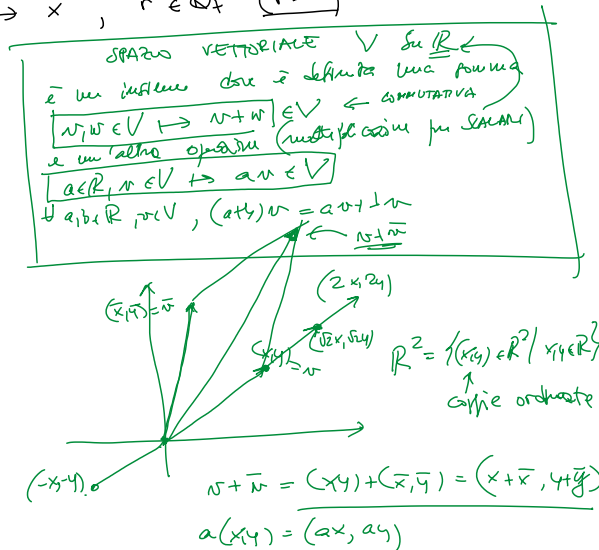 → x ,
SPAZIO VETTORIALE V su ℝ
è un insieme dove è definita una somma
v, w ∈ V ↦ v+w ∈ V ← COMMUTATIVA
e un'altra operazione (moltiplicazione per SCALARI)
a ∈ ℝ, v ∈ V ↦ av ∈ V
∀ a, b ∈ ℝ, v ∈ V, (a+b)v = av + bv
← v + v̅
(2x, 2y)
(x̅, y̅) = v̅
(√2x, √2y)
(x, y) = v
ℝ² = {(x, y) ∈ ℝ² / x, y ∈ ℝ}
coppie ordinate
(-x, -y)
v + v̅ = (x, y) + (x̅, y̅) = (x + x̅, y + y̅)
a(x, y) = (ax, ay)